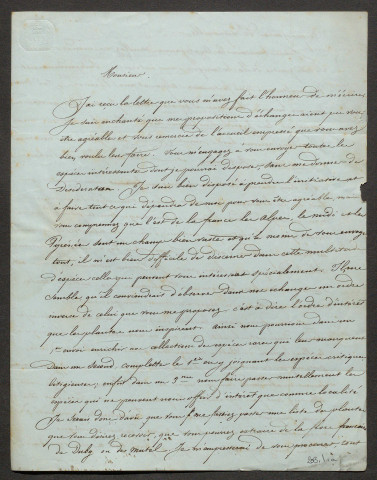 Monsieur.
J'ai reçu la lettre que vous m'avez fait l'honneur de m'écrire
Je suis enchanté que mes propositions d'échange aient pu vous
être agréable et vous remercie de l'accueil empressé que vous avez
bien voulu leur faire. Vous m'engagez à vous envoyer toutes les
espèces intéressantes dont je pourrai disposer, sans me donner de
Desiderata. Je suis bien disposé à prendre l'initiative et
à faire tout ce qui dépendra de moi pour vous être agréable mais
vous comprenez que l'est de la france les Alpes, le midi et les
Pyrénées sont un champ bien vaste et qu'au nom de vous envoyer
tout, il m'est bien difficile de choisir dans cette multitude
d'espèces celles qui peuvent vous intéresser spécialement. Il me
semble qu'il conviendrait d'observer dans nos échanges un ordre
inverse de celui que vous me proposez c'est à dire l'ordre d'intérêt
que les plantes nous inspirent. ainsi nous pourrions dans un
1er envoi enrichir nos collections des espèces rares que leur manquent
Dans un second, compléter le 1er en y joignant les espèces critiques
litigieuses, enfin dans un 3me nous faire passer mutuellement les
espèces qui ne peuvent nous offrir d'intérêt que comme localité
Je désire donc que vous me fassiez passer une liste des plantes
que vous désirez recevoir, que vous pouvez extraire de la flore française
de Duby ou de Mutel. Je m'empresserai de vous procurer, tout